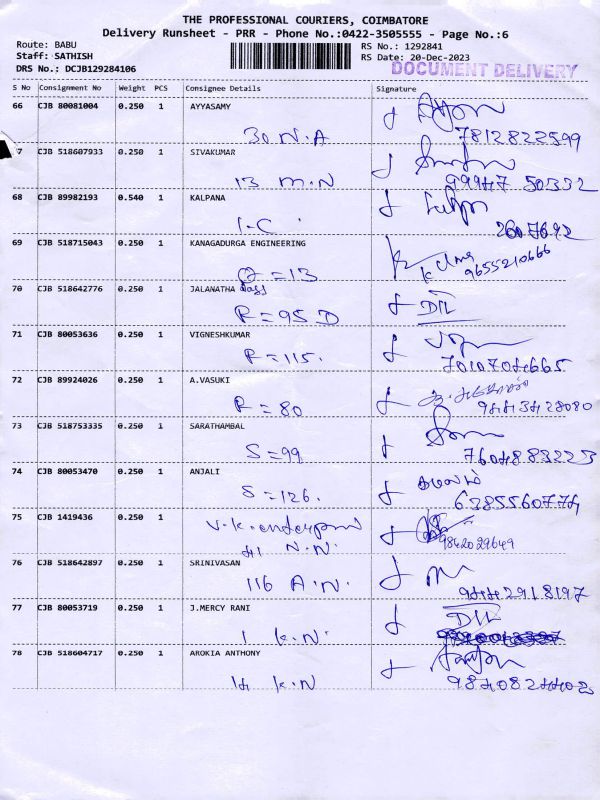 THE PROFESSIONAL COURIERS, COIMBATORE
Delivery Runsheet - PRR - Phone No.:0422-3505555 - Page No.:6
Route: BABU
RS No.: 1292841
Staff: SATHISH
RS Date: 20-Dec-2023
DRS No.: DCJB129284106
DOCUMENT DELIVERY
S No Consignment No Weight PCS Consignee Details Signature
66 CJB 80081004 0.250 1 AYYASAMY
30 N.A 7812822599
7 CJB 518607933 0.250 1 SIVAKUMAR
13 M.N 99947 50332
68 CJB 89982193 0.540 1 KALPANA
1-C 2607692
69 CJB 518715043 0.250 1 KANAGADURGA ENGINEERING
=13 9655210666
70 CJB 518642776 0.250 1 JALANATHA
R=95 D D/L
71 CJB 80053636 0.250 1 VIGNESHKUMAR
R=115. 7010704665
72 CJB 89924026 0.250 1 A.VASUKI
R=80 9443428080
73 CJB 518753335 0.250 1 SARATHAMBAL
S=99 7604883223
74 CJB 80053470 0.250 1 ANJALI
S=126. 6385560774
75 CJB 1419436 0.250 1
V.K.enterprises
41 N.N. 9842029649
76 CJB 518642897 0.250 1 SRINIVASAN
116 A.N. 9442918197
77 CJB 80053719 0.250 1 J.MERCY RANI
1 K.N. D/L
78 CJB 518604717 0.250 1 AROKIA ANTHONY
14 K.N 9840824402